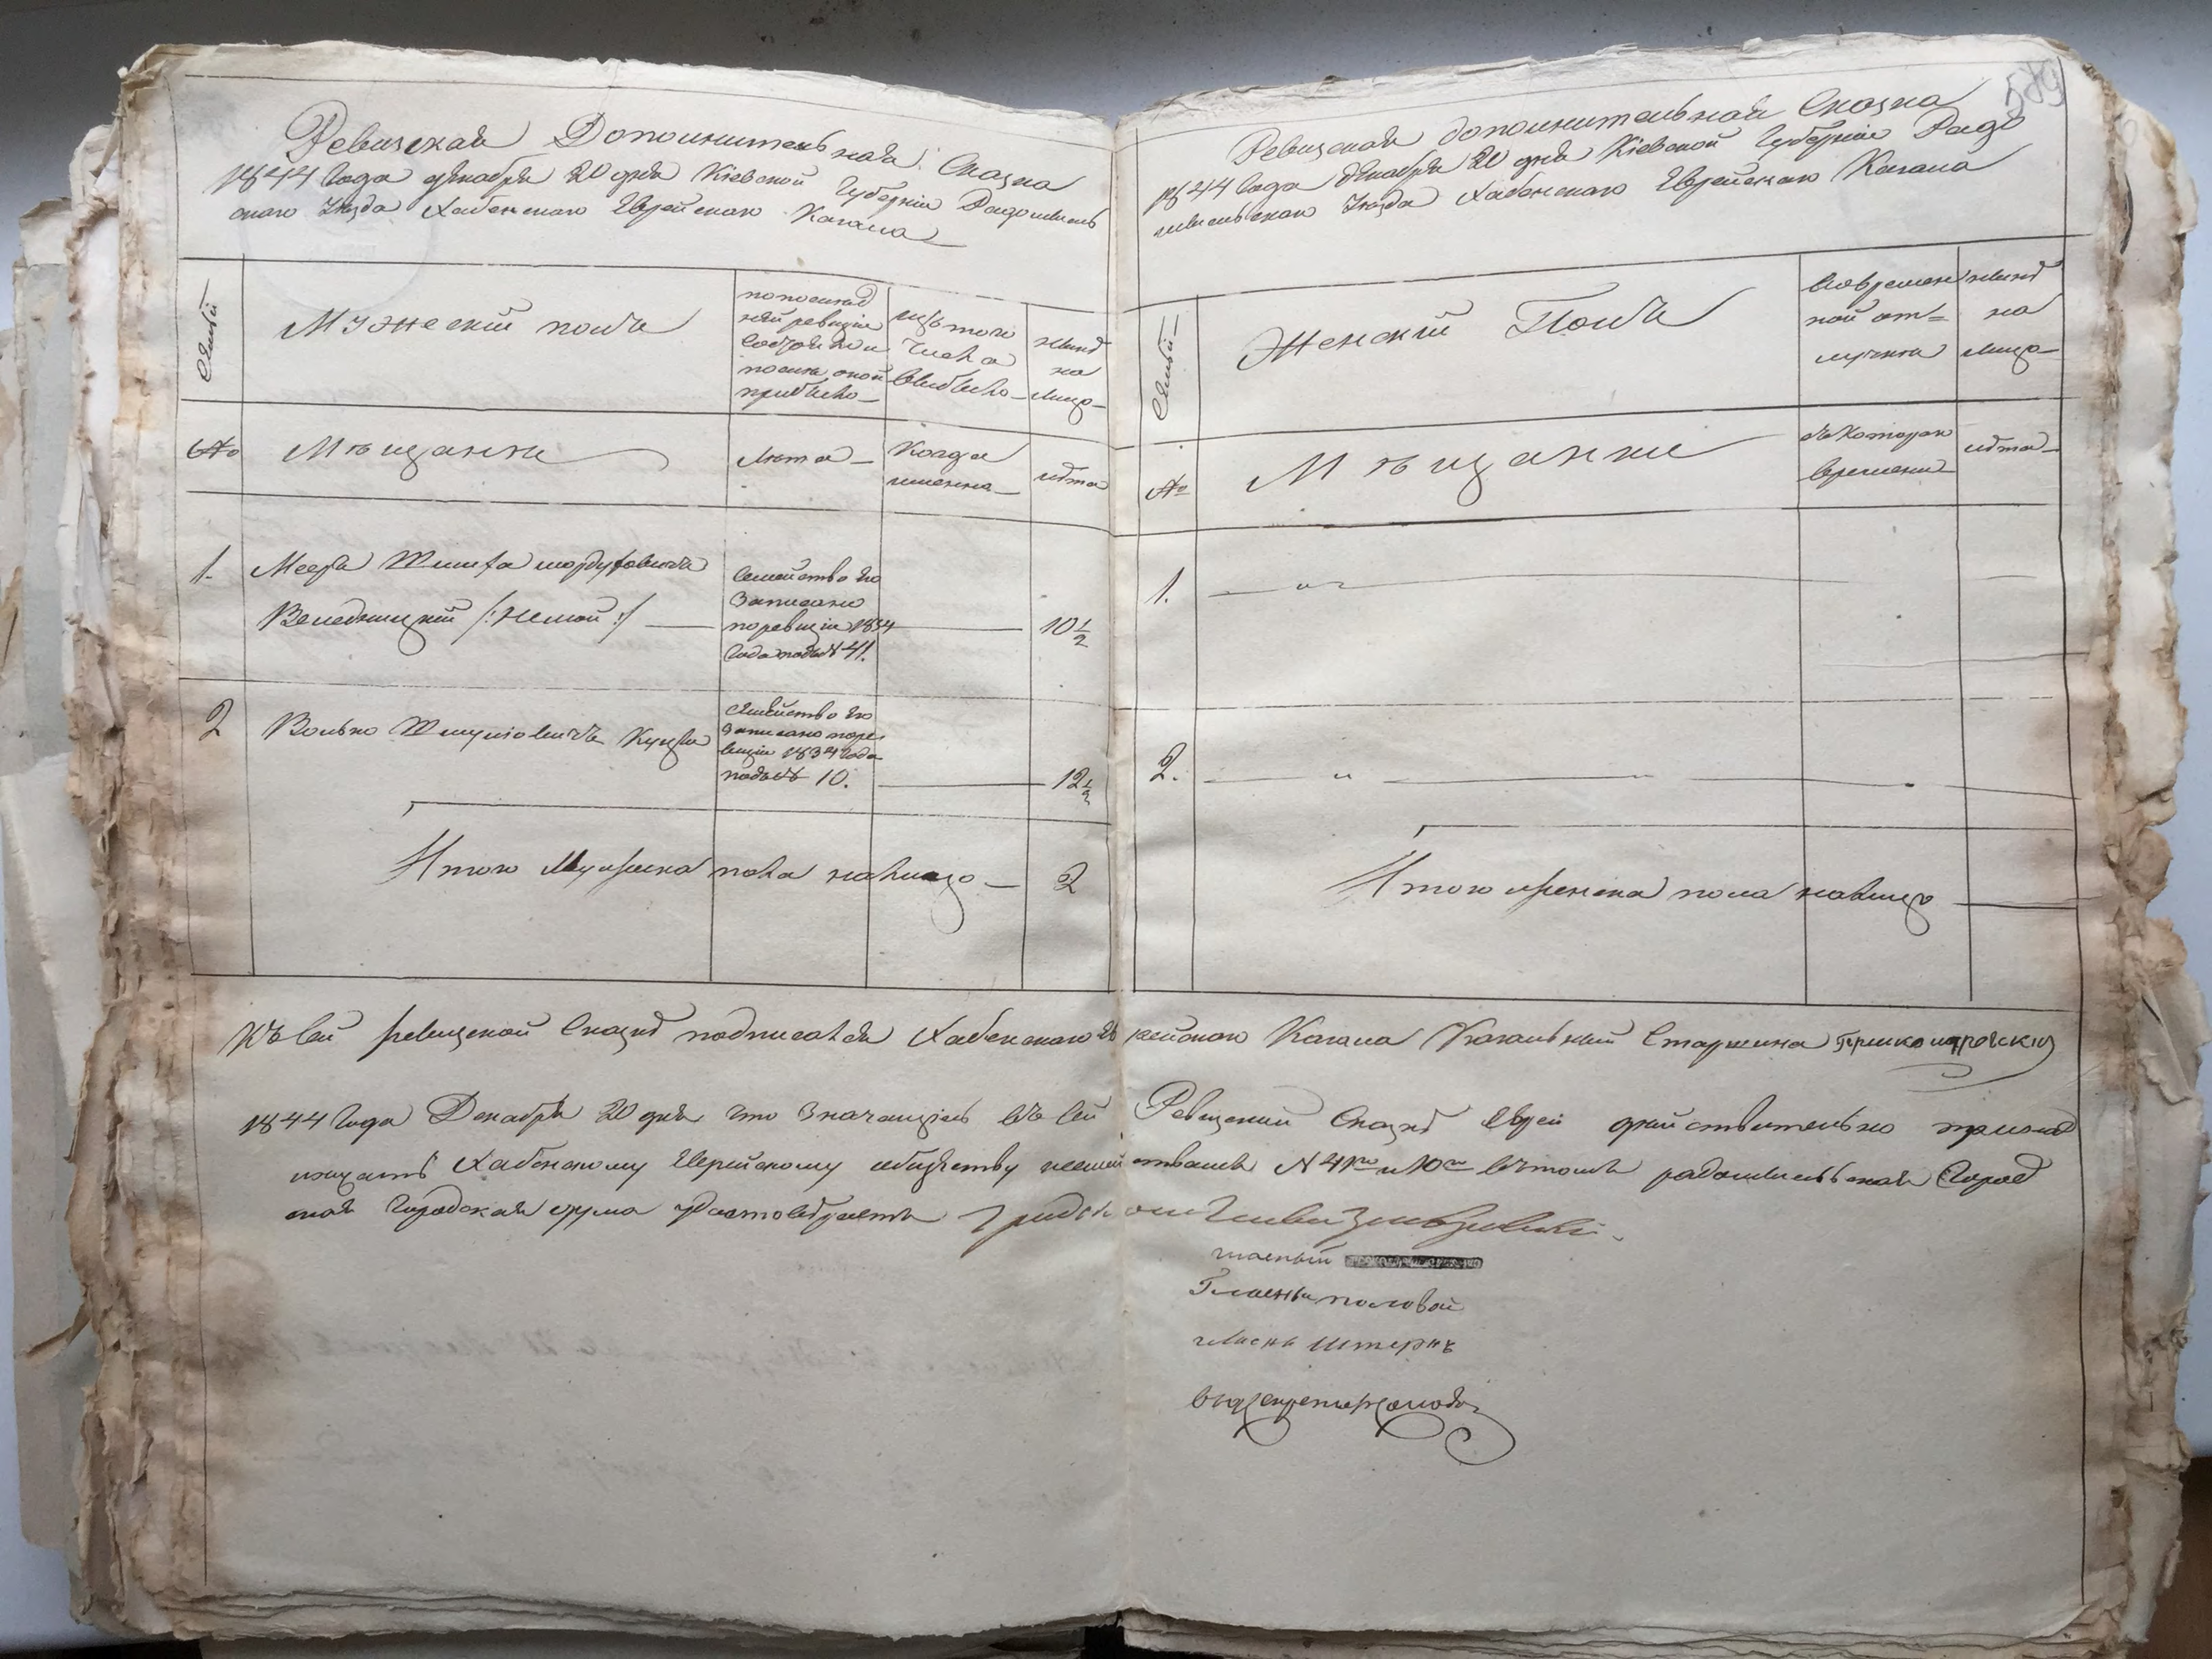 Ревизская Дополнительная Сказка
1844 Года декабря 20 дня Кіевской Губерніи Радомысль
скаго Уезда Хабенскаго Еврейскаго Кагала
Семьи
Мужескій полъ
по послед
ней ревизіи
состояло и
после оной
прибыло
изъ того
числа
выбыло
ныне
на
лицо
№
Мещанъ
Лета
Когда
именно
лета
1.
Мееръ Шлиома Мордуховичъ
Веледницкій /: немой :/
10 1/2
Семейство его
Записано
по ревизіи 1834
Года подъ № 41.
2
Волько Шмуліовичъ
12 1/2
Семейство его
Записано по ре
визіи 1834 Года
подъ № 10.
Итого Мужеска пола на лицо
2
589
Ревизская дополнительная Сказка
1844 Года декабря 20 дня Кіевской Губерніи Радо
мысльскаго Уезда Хабенскаго Еврейскаго Кагала
Семьи
Женскій Полъ
Во времен
ной от=
лучке
ныне
на
лицо
№
Мещанки
съ котораго
времени
лета
1.
2.
Итого женска пола на лицо
Къ сей ревизской Сказке подписался Хабенскаго Ев рейскаго Кагала Кагальный Старшина
1844 Года Декабря 20 дня что Значащіесь въ сей Ревизской Сказке Евреи действительно принад
лежатъ Хабенскому Еврейскому обществу семействамъ N 41го и 10го въ томъ радомысльская Город
ская Городская дума удостоверяетъ
гласный
Гласный половой
гласнъ штернъ